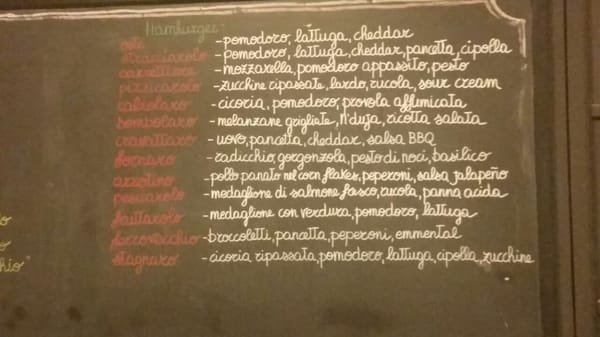 Hamburger
oste - pomodoro, lattuga, cheddar
stracciarolo - pomodoro, lattuga, cheddar, pancetta, cipolla
carrettiere - mozzarella, pomodoro appassito, pesto
pizzicarolo - zucchine ripassate, lardo, rucola, sour cream
cabiolaro - cicoria, pomodoro, provola affumicata
bombolaro - melanzane grigliete, n'duja, ricotta salata
cravattaro - uovo, pancetta, cheddar, salsa BBQ
fornaro - radicchio, gorgonzola, pesto di noci, basilico
- pollo panato nel corn flakes, peperoni, salsa jalapeño
pesciarolo - medaglione di salmone fresco, rucola, panna acida
fruttarolo - medaglione con verdura, pomodoro, lattuga
ferrovecchio - broccoletti, pancetta, peperoni, emmental
stagnaro - cicoria ripassata, pomodoro, lattuga, cipolla, zucchine